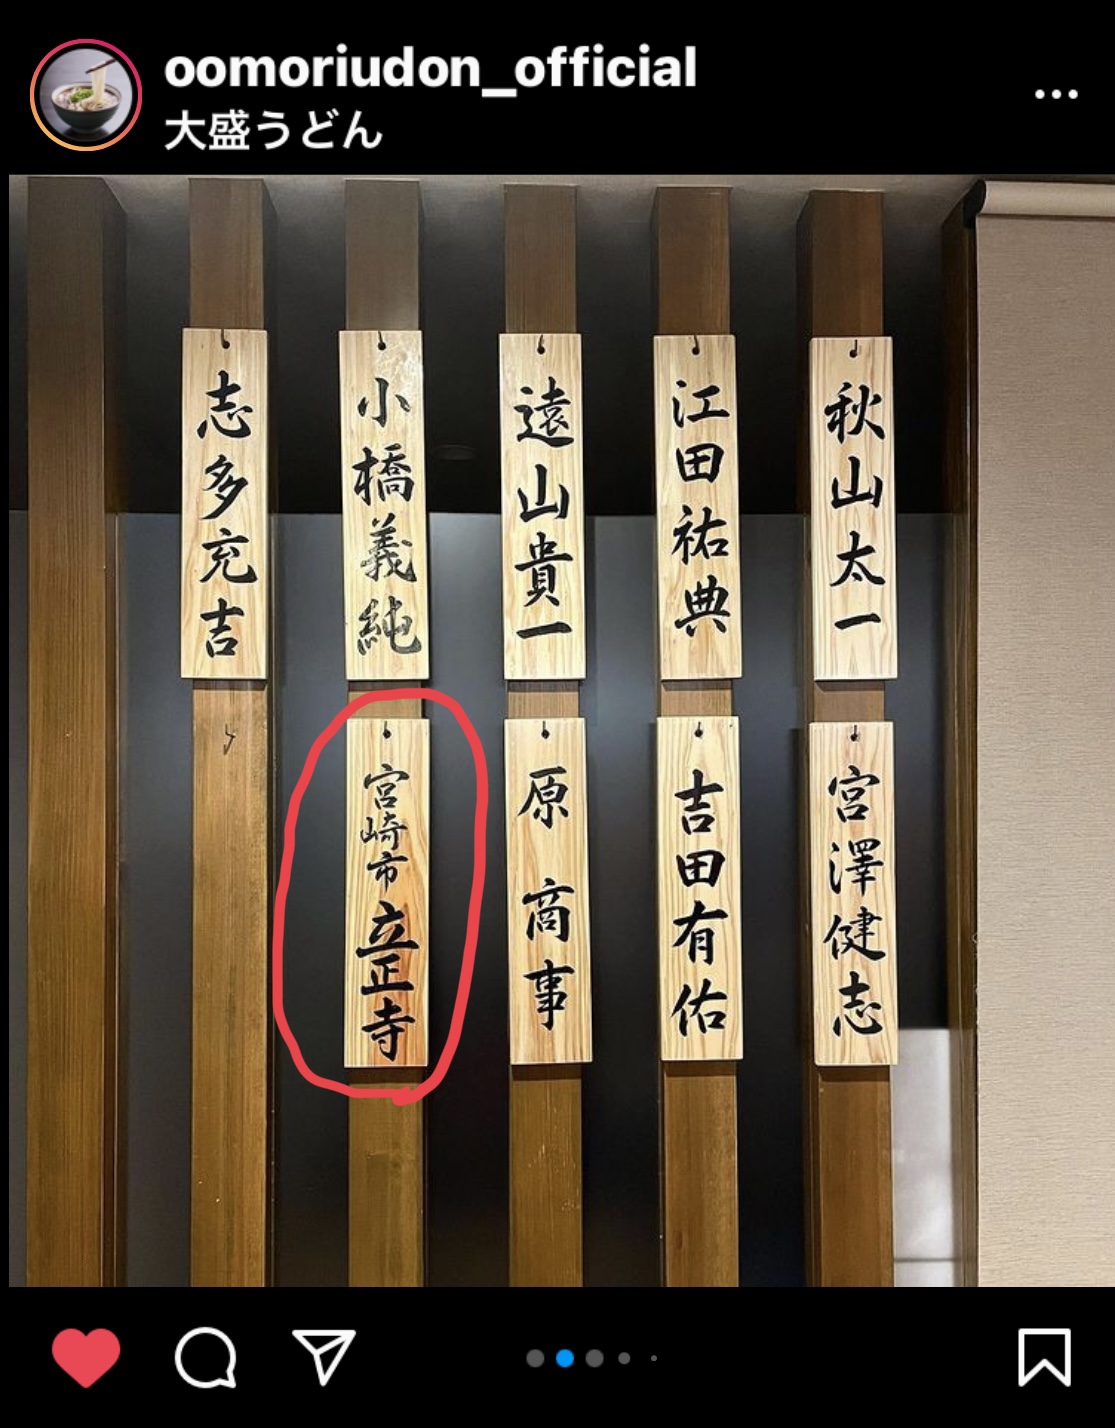 oomoriudon_official
大盛うどん
秋山太一
江田祐典
遠山貴一
小橋義純
志多充吉
宮澤健志
吉田有佑
原商事
宮崎市立正寺